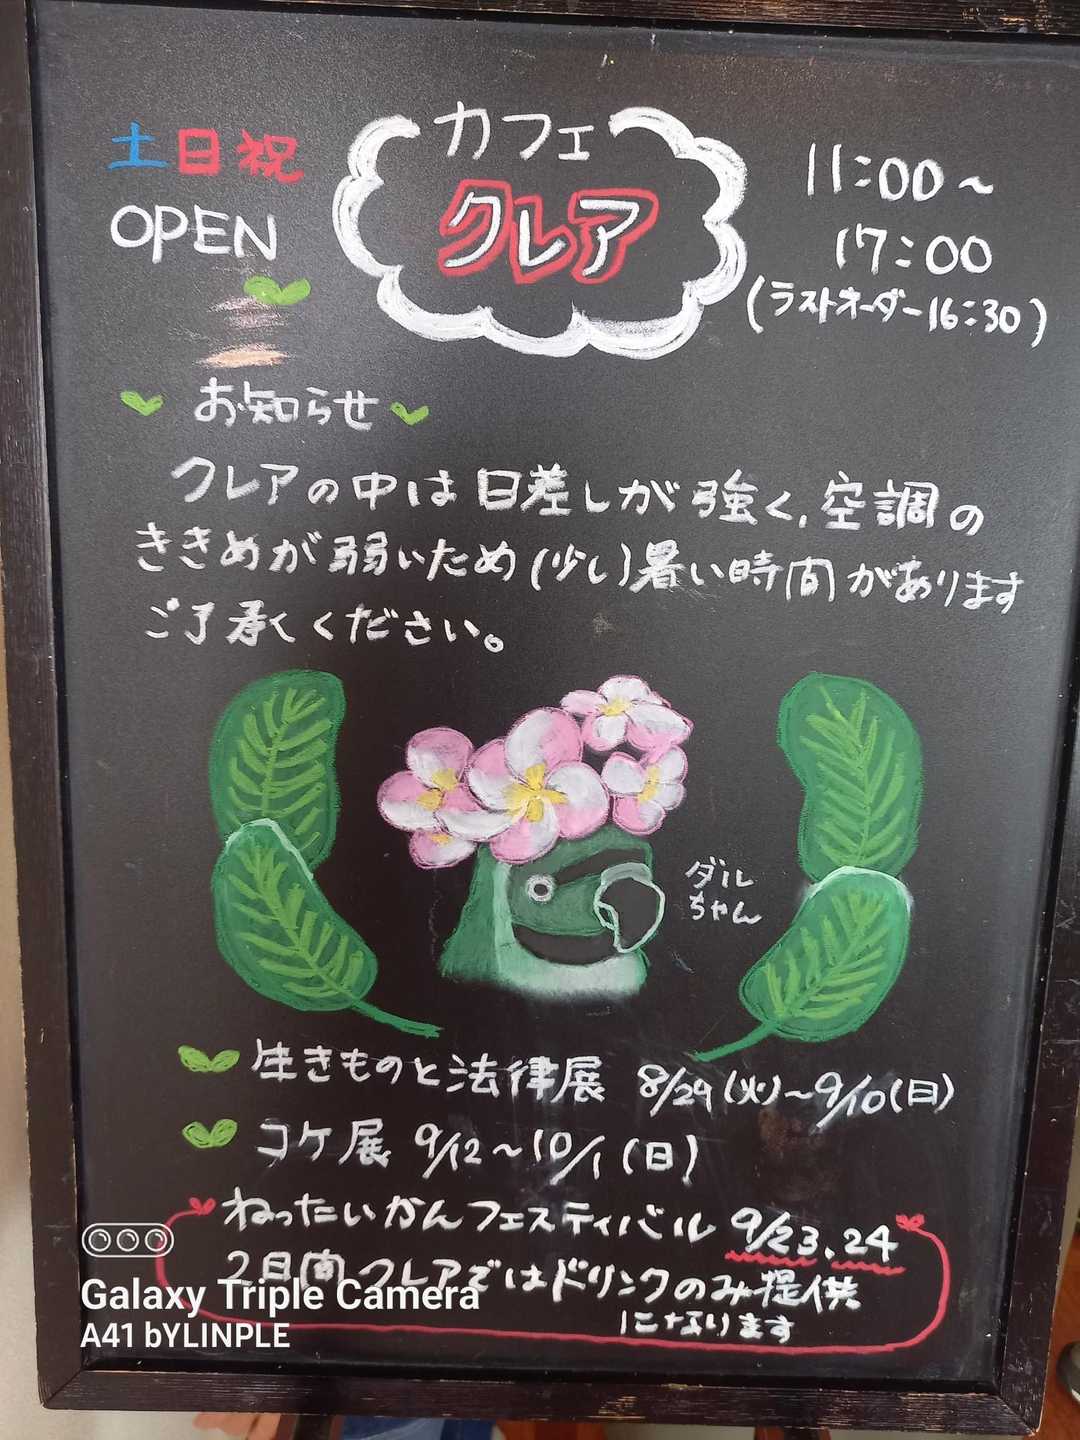 土日祝
OPEN
カフェ
クレア
11:00～
17:00
(ラストオーダー16:30)
お知らせ
クレアの中は日差しが強く、空調の
ききめが弱いため(少し)暑い時間があります
ご了承ください。
ダル
ちゃん
生きものと法律展 8/29(火)～9/10(日)
コケ展 9/12～10/1(日)
ねったいかんフェスティバル 9/23、24
2日間クレアではドリンクのみ提供
になります
Galaxy Triple Camera
A41 bYLINPLE